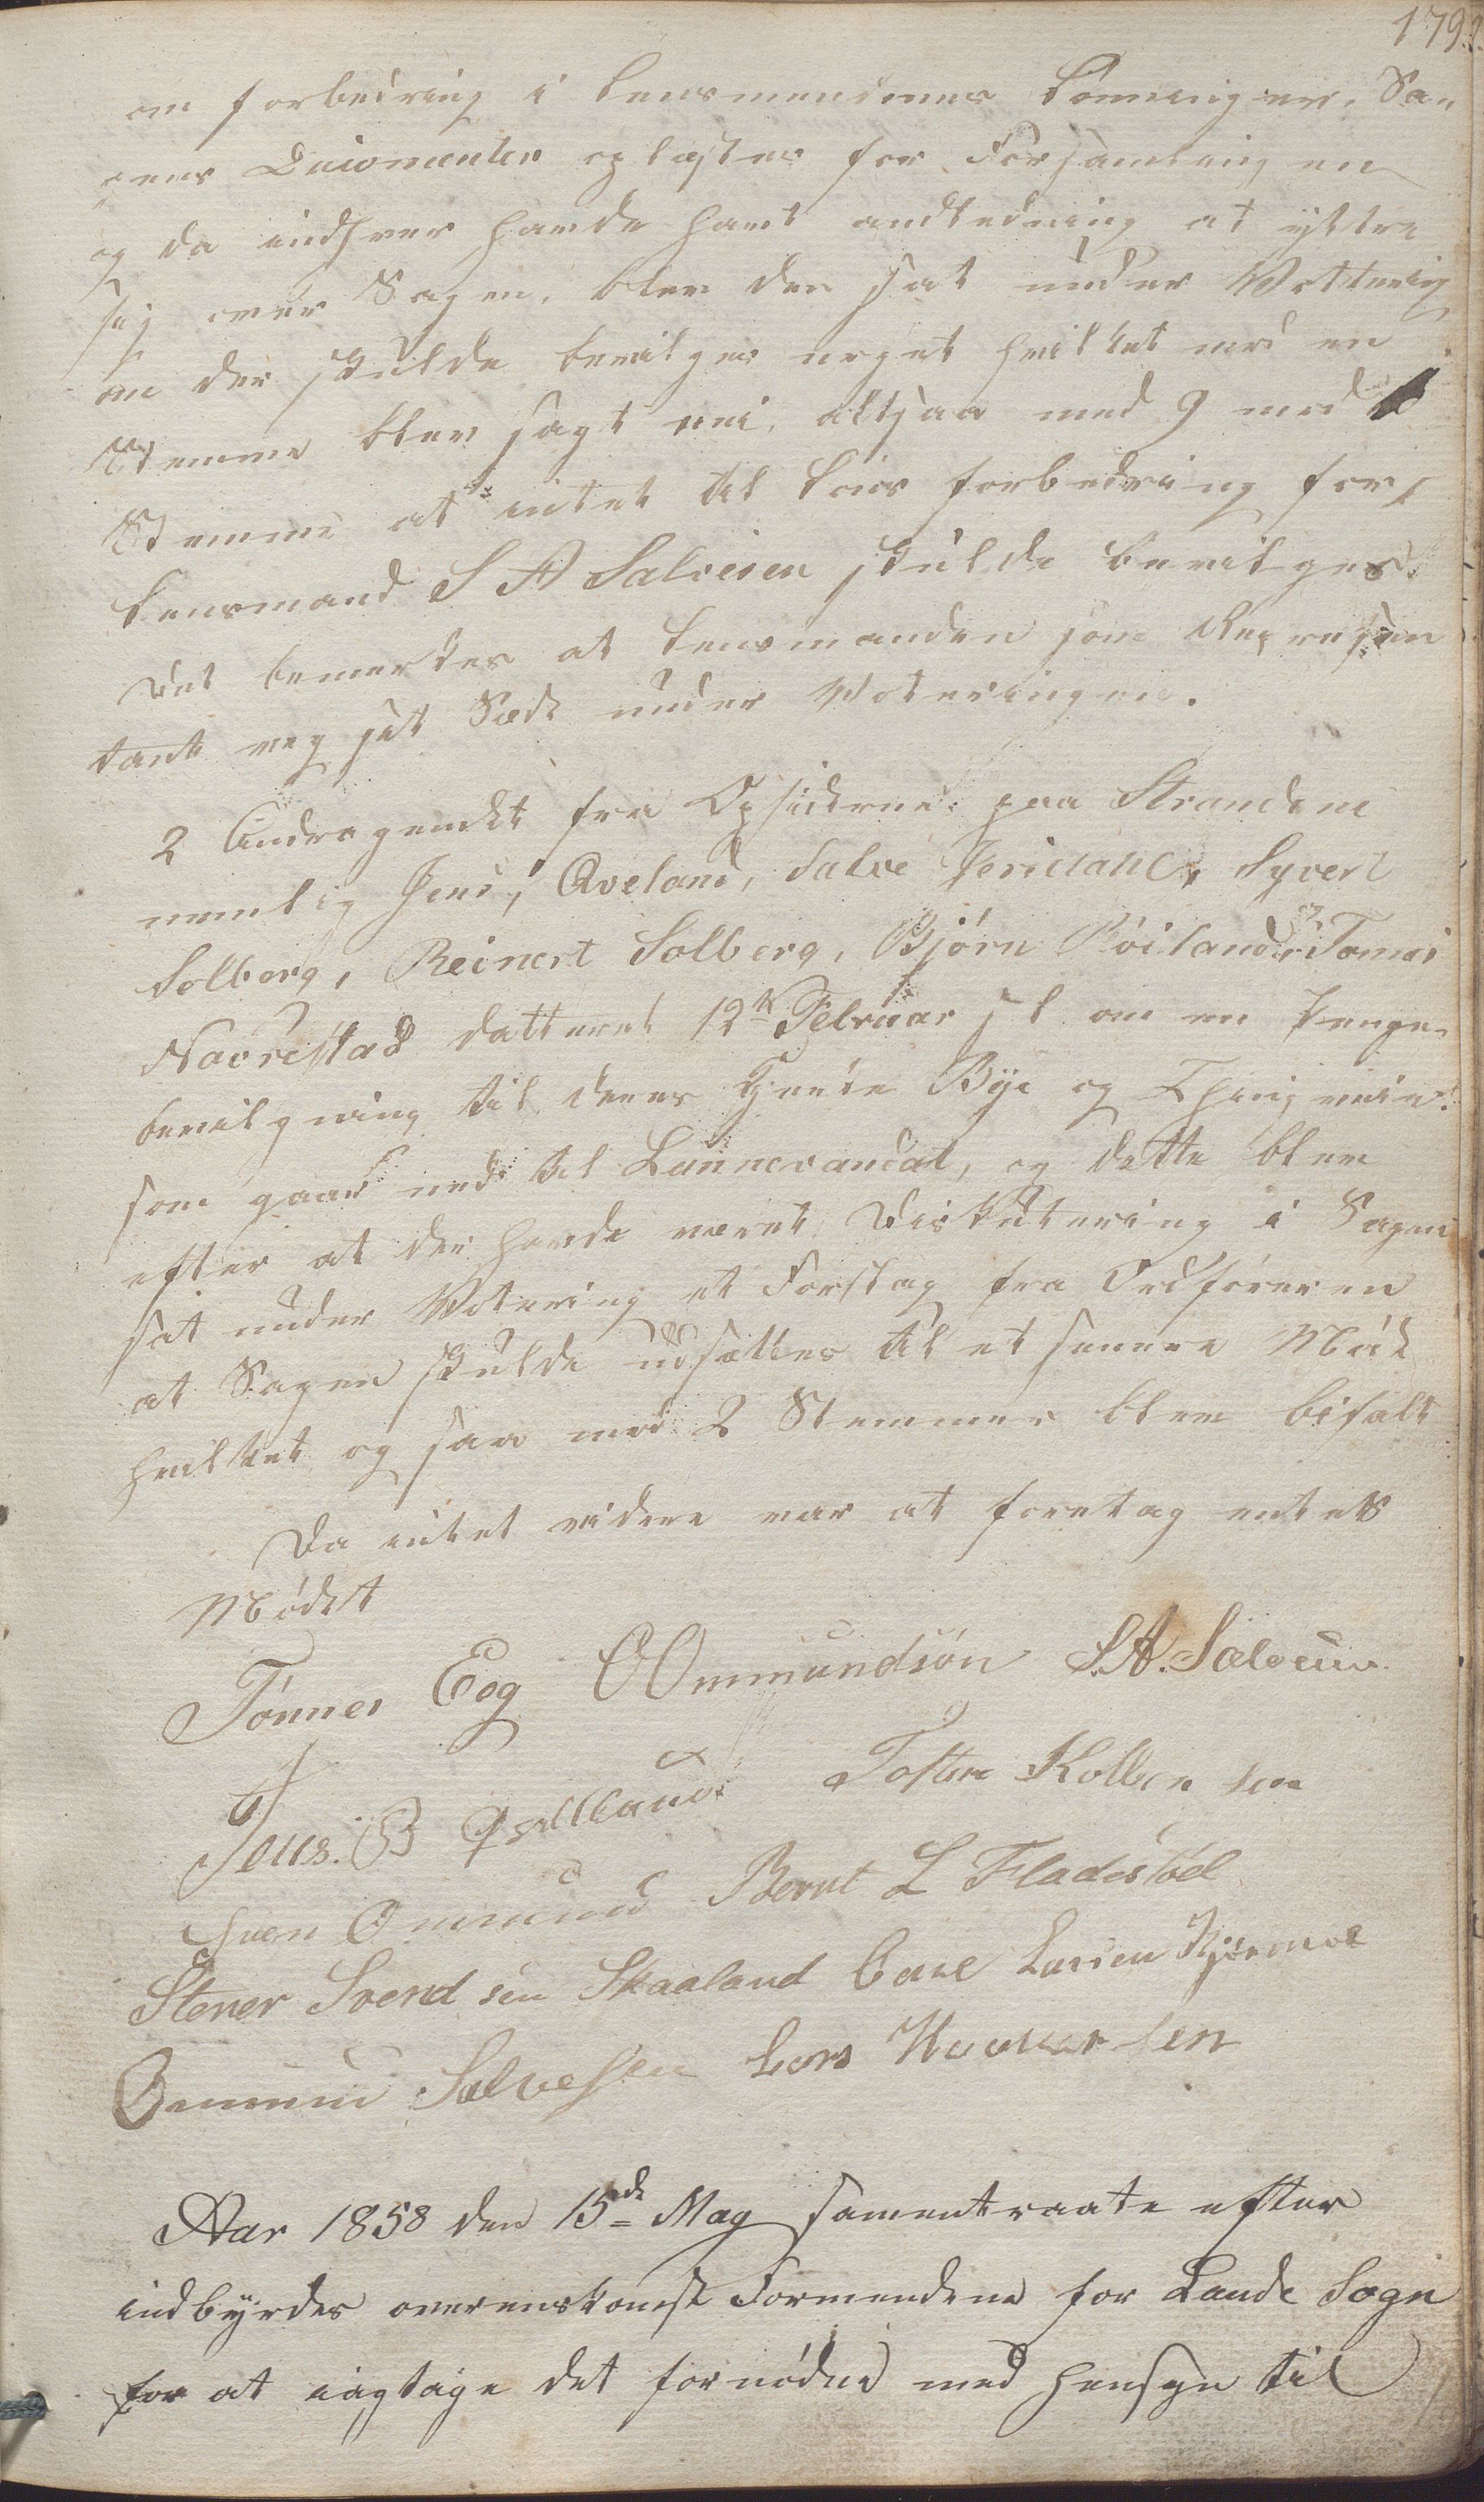 179
om forbedring i Lensmendenes Lønninger. Sa-
gens Ducomenter oplæstes for Forsamlingen
og da indhver havde havt andledning at yttre
sig over Sagen, blev der sat under Votterig
om der skulde bevilges noget hvilket med en
Stemme blev sagt nei, altsaa med 9 mod 1
Stemme at intet til Løns forbedring for
Lensmand S A Salvesen skulde bevilges.
Det bemerkes at Lensmanden som Represen
tant veg sit Sæde under Voteringen.
2 Andragendet fra Opsiderne paa Strandene
nemlig Jens, Qveland, Salve Jerstadt, Syvert
Solberg, Reinert Solberg, Bjørn Røiland og Tomas
Navrestad datteret 12te Februar sl om en Penge-
bevilgning til deres Gaarde Bye og Thingveie.
som gaar ned til Lunnevandet, og dette blev
efter at der havde veret Diskutering i Sagen
sat under Votering et Forslag fra Ordføreren
at Sagen skulde udsættes til et senere Møde
hvilket og saa mod 2 Stemmer blev bifalt
Da intet videre var at foretag entes
Mødet
Tønnes Eeg OOmmundsøn S.A. Salvesen
Jens. B Qvelland Tosten Kolben sen
Sven Ommund Bernt L Fladestøl
Stener Svend sen Skaaland Carl Larsen
Ommund Salvesen Lars
Aar 1858 den 15de May samentraate efter
indbyrdes overenskomst Formendene for Lande Sogn
for at iagtage det fornødne med Hensyn til